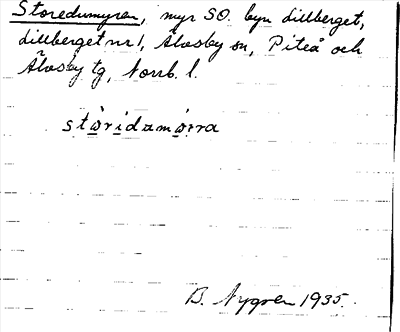 Storedumyren, myr SO. byn Lillberget,
Lillberget nr 1, Älvsby sn, Piteå och
Älvsby tg, Norrb. l.
B. Nygren 1935.